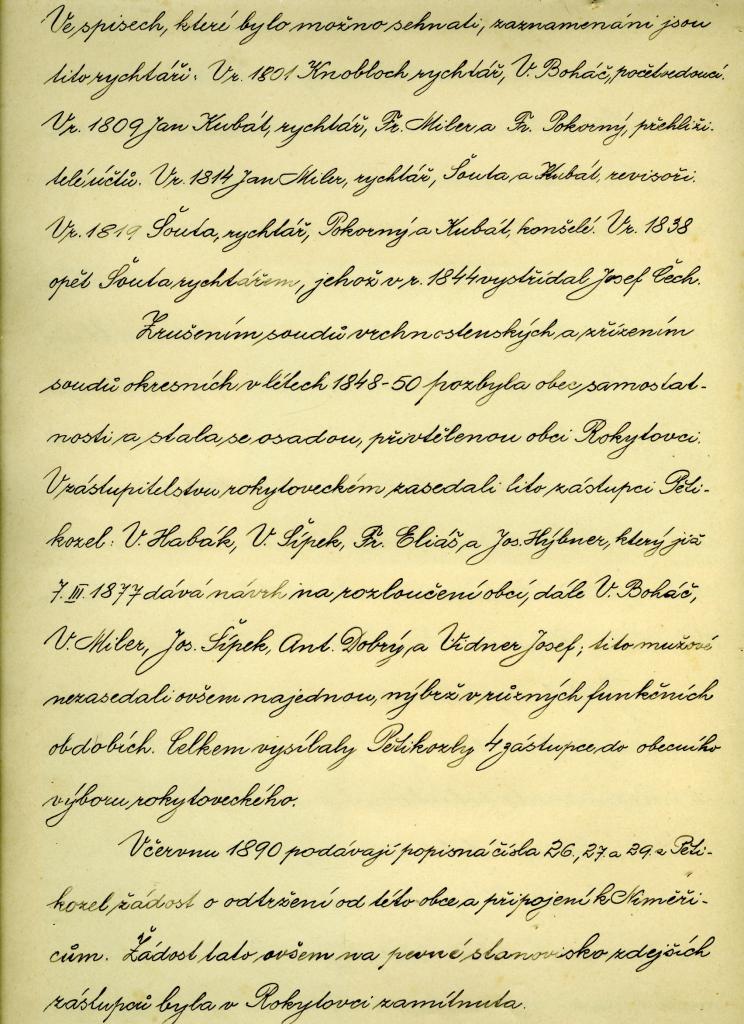 Ve spisech, které bylo možno sehnati, zaznamenáni jsou
tito rychtáři: V r. 1801 Knobloch rychtář, V. Boháč, počet vedoucí.
V r. 1809 Jan Kubát, rychtář, Fr. Miler a Fr. Pokorný, přehliži-
telé účtů. V r. 1814 Jan Miler, rychtář, Šouta a Kubát, revisoři.
V r. 1819 Šouta, rychtář, Pokorný a Kubát, konšelé. V r. 1838
opět Šouta rychtářem, jehož v r. 1844 vystřídal Josef Čech.
Zrušením soudů vrchnostenských a zřízením
soudů okresních v létech 1848-50 pozbyla obec samostat-
nosti a stala se osadou, přivtělenou obci Rokytovci.
V zástupitelstvu rokytoveckém zasedali tito zástupci Peti-
kozel: V. Habák, V. Šípek, Fr. Eliáš, a Jos. Hýbner, který již
7. III. 1877 dává návrh na rozloučení obcí, dále V. Boháč,
V. Miler, Jos. Šípek, Ant. Dobrý, a Vidner Josef; tito mužové
nezasedali ovšem najednou, nýbrž v různých funkčních
obdobích. Celkem vysílaly Petikozly 4 zástupce do obecního
výboru rokytoveckého.
V červnu 1890 podávají popisná čísla 26., 27. a 29. z Peti-
kozel žádost o odtržení od této obce a připojení k Niměři-
cům. Žádost tato ovšem na pevné stanovisko zdejších
zástupců byla v Rokytovci zamítnuta.